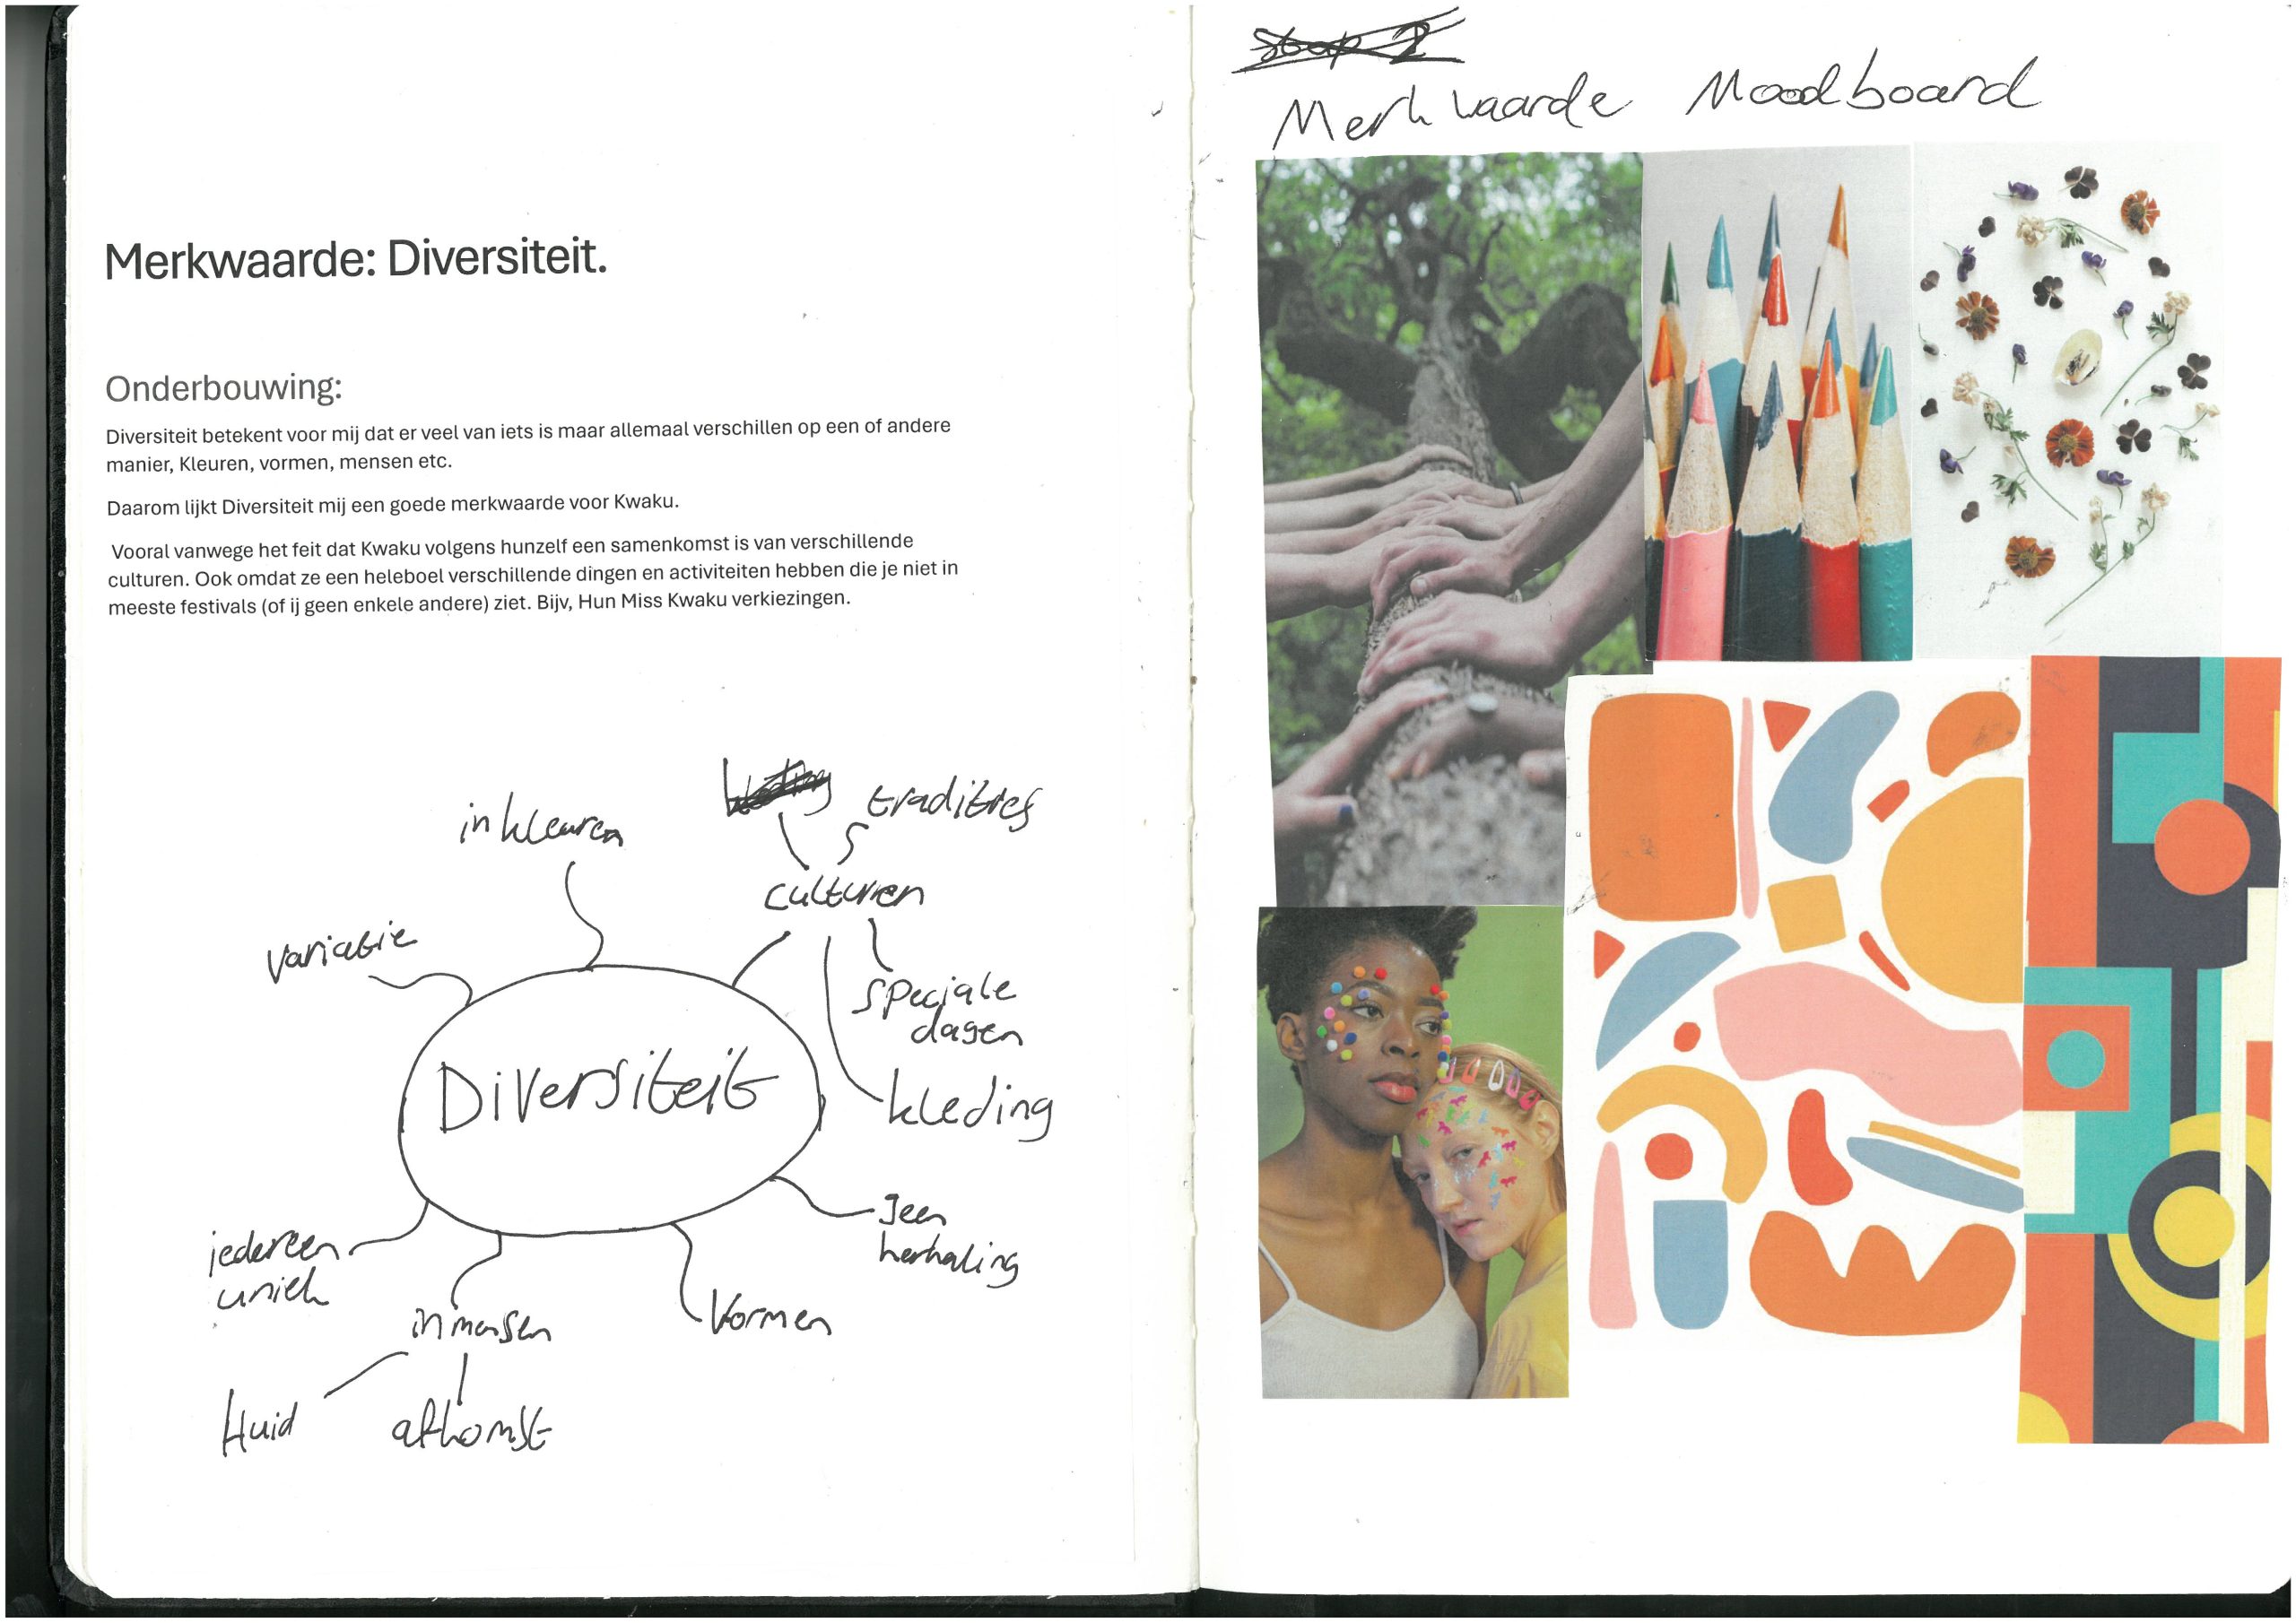 Merkwaarde: Diversiteit.
Onderbouwing:
Diversiteit betekent voor mij dat er veel van iets is maar allemaal verschillen op een of andere
manier, Kleuren, vormen, mensen etc.
Daarom lijkt Diversiteit mij een goede merkwaarde voor Kwaku.
Vooral vanwege het feit dat Kwaku volgens hunzelf een samenkomst is van verschillende
culturen. Ook omdat ze een heleboel verschillende dingen en activiteiten hebben die je niet in
meeste festivals (of ij geen enkele andere) ziet. Bijv, Hun Miss Kwaku verkiezingen.
tradities
in kleuren
culturen
variatie
speciale
dagen
Diversiteit
kleding
geen
herhaling
iedereen
uniek
in mensen
Vormen
Huid
afkomst
Stap 2
Merkwaarde Moodboard